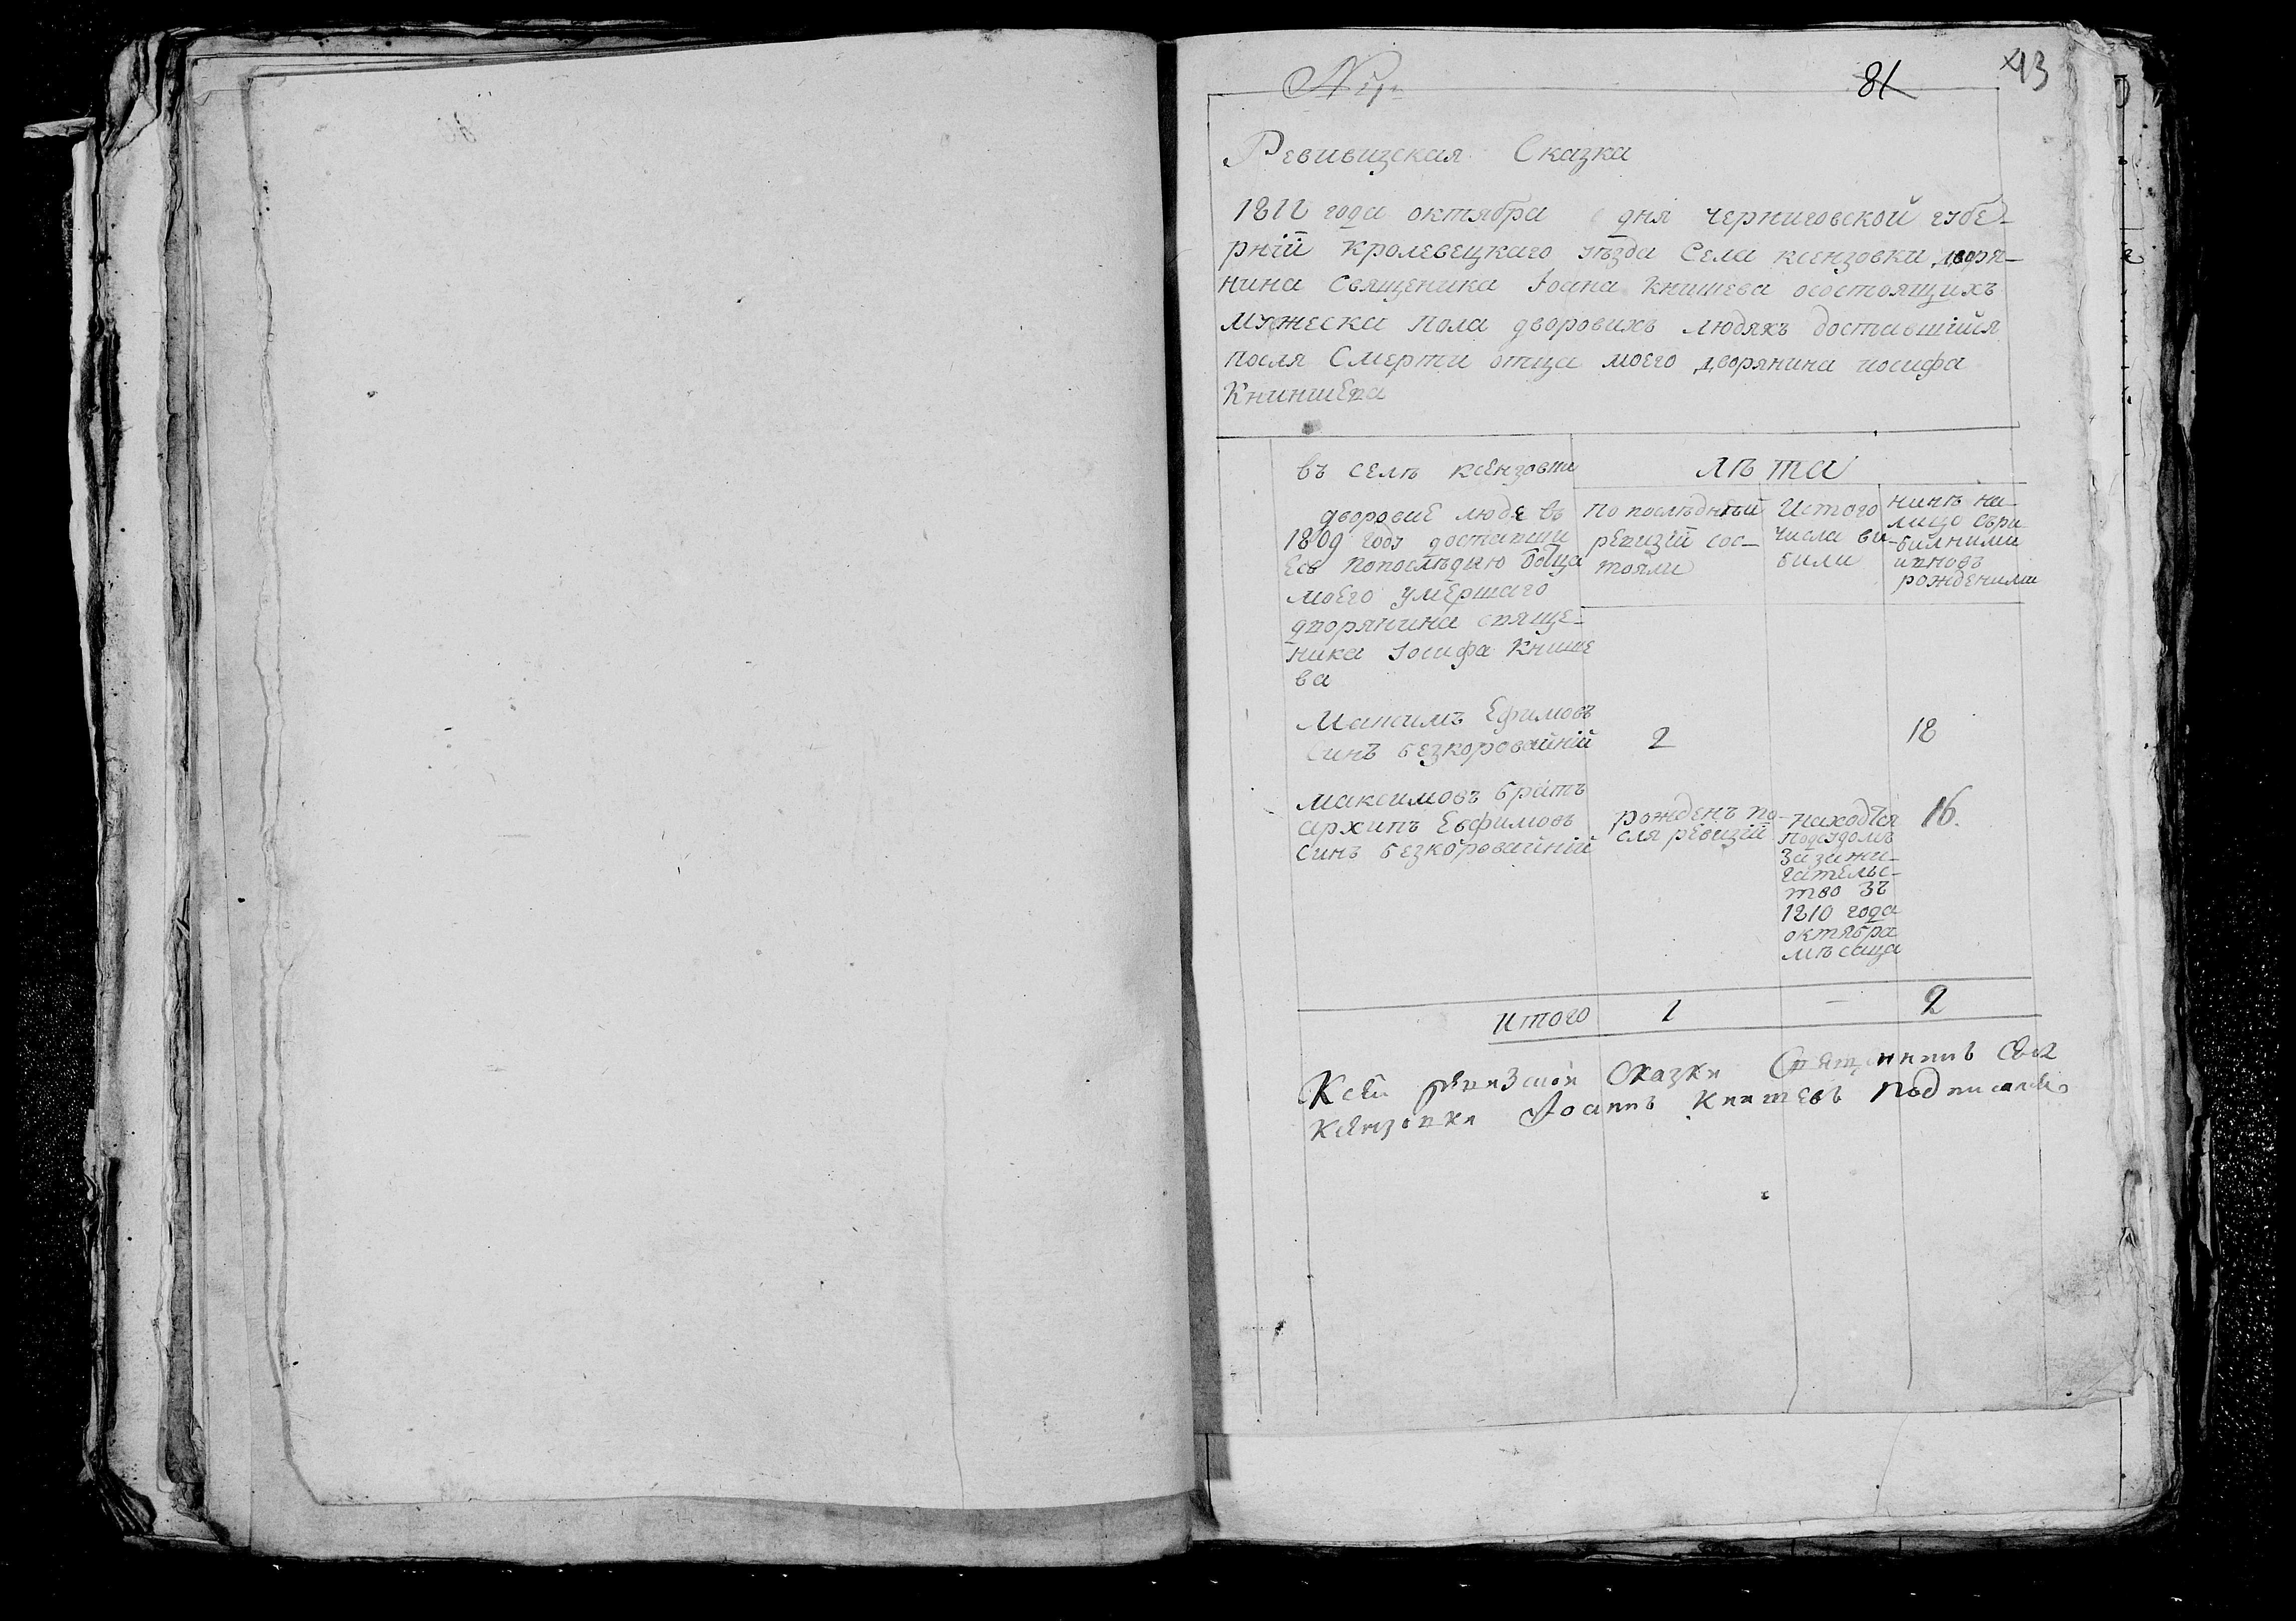 81
43
Ревивизская Сказка
1811 года октября дня черниговской губе-
рній кролевецкаго уѣзда Села ксензовки дворя-
нина священика Іоана Книшева осостоящихъ
мужеска пола дворовихъ людяхъ доставшійся
посля Смерти отца моего дворянина иосифа
Книшева
въ селѣ ксензовки
лѣта
дворовие люде въ
1809 году доставши
есь попослѣднею
моего умершаго
дворянина свяще-
ника Іосифа Книше
ва
по послѣдней
ревизій сос-
тояли
Истого
числа ви-
били
нинѣ на-
лицо
билними
ивновъ
рожденими
Максимъ Ефимовъ
Синъ безкоровайній
2
18
максимовъ братъ
архипъ Евфимовъ
синъ безкоровайній
рожденъ по-
сля ревизій
находися
подсудомъ
зазажи-
гательс-
тво зъ
1810 года
октября
мѣсаца
16.
итого 1 — 2
Ксей ревизской Сказки Священникъ села
Ксензовки Іоаннъ Книшевъ подписался